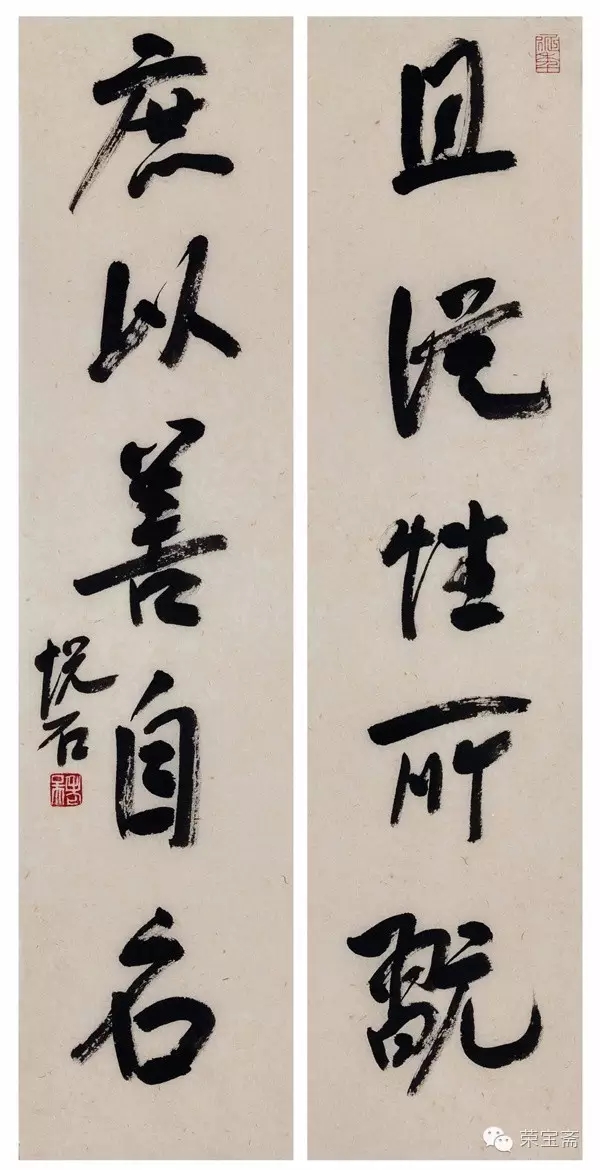 且從性所翫
庶以善自名
悦石
荣宝斋